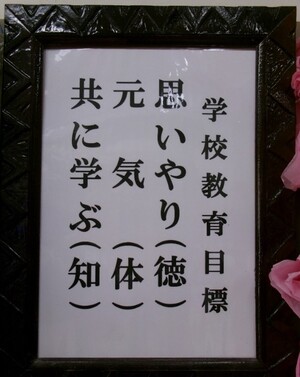 学校教育目標
思いやり(徳)
元気(体)
共に学ぶ(知)